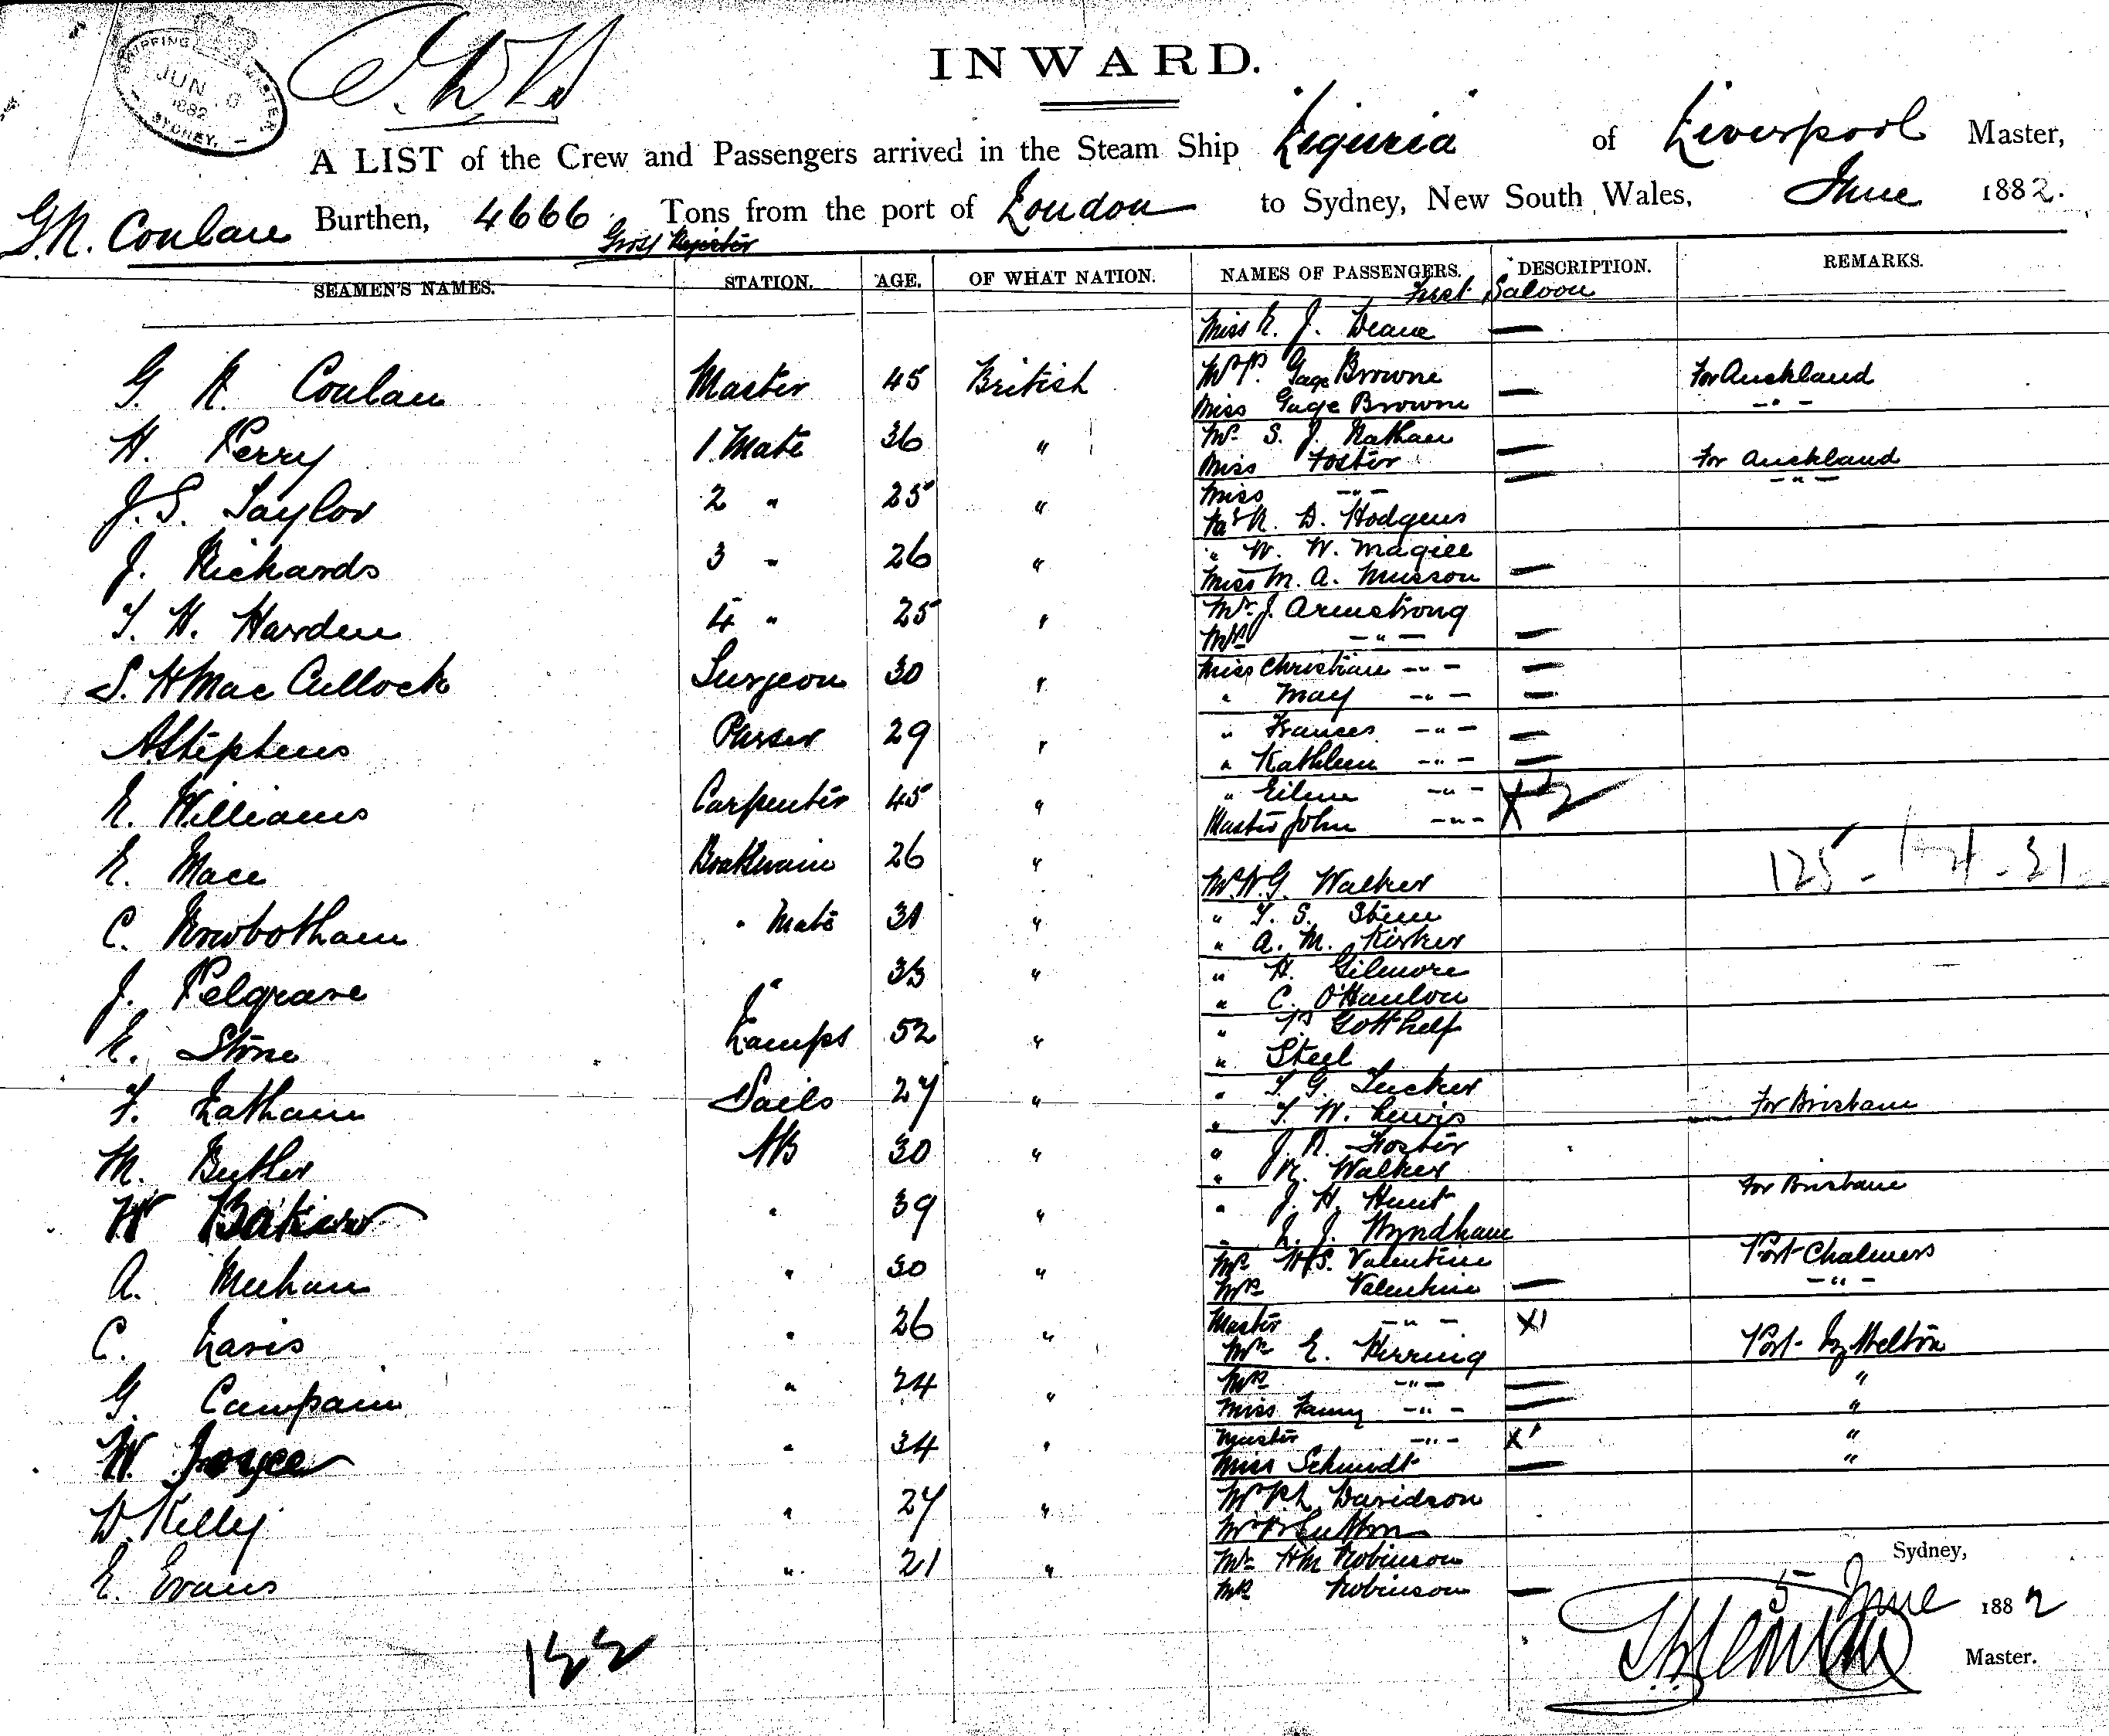 SHIPPING MASTER
JUN 6
1882
SYDNEY.
INWARD.
A LIST of the Crew and Passengers arrived in the Steam Ship Liguria of Liverpool Master,
G.N. Conlan Burthen, 4666 Tons from the port of London to Sydney, New South Wales, June 1882.
Gross Register
SEAMEN'S NAMES. STATION. AGE. OF WHAT NATION. NAMES OF PASSENGERS. DESCRIPTION. REMARKS.
First Saloon
Miss E. J. Deane —
G. N. Conlan Master 45 British Mrs. Gage Browne For Auckland
Miss Gage Browne — -"-
H. Perry 1 Mate 36 " Mr S. J. Nathan —
Miss Foster — For Auckland
J.S. Taylor 2 " 25 " Miss -"- -"-
R. D. Hodgens
J. Richards 3 " 26 " " W. W. Magill
Miss M. A. Musson —
T. H. Harden 4 " 25 " Mr. J. Armstrong
Mrs -"- —
S. H Mac Cullock Surgeon 30 " Miss Christian -"- —
" May -"- —
A Stephens Purser 29 " " Frances -"- —
" Kathleen -"- —
E. Williams Carpenter 45 " " Eileen -"- X2
Master John -"-
E. Mace Boatswain 26 " Mr W.G. Walker 125 - - 31
C. Rowbotham " Mate 31 " " T. S. Stein
" A. M. Kirker
J. Pelgrave " 33 " " H. Gilmore
" C. O'Hanlon
E. Stone Lamps 52 " " P. Gotthelf
" Steel
F. Latham Sails 27 " " T. G. Tucker
" T. W. Lewis For Brisbane
M. Butler AB 30 " " J. R. Foster
" R. Walker
W Baker " 39 " " J. H. Hunt For Brisbane
" J. Wyndham
A. Meehan " 30 " Mr H.S. Valentine Port Chalmers
Mrs Valentine — -"-
C. Laris " 26 " Master -"- X1
Mr E. Herring Port Lyttelton
G. Campain " 24 " Mrs -"- — "
Miss Fanny -"- — "
W. Joyce " 34 " Master -"- X' "
Miss Schmidt — "
D. Kelly " 27 " Mr P.L. Davidson
Mr Sutton
E. Evans " 21 " Mr H M Robinson Sydney,
Mrs Robinson — 5 June 1882
122
Master.